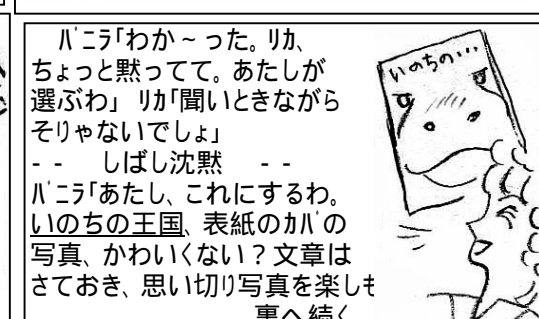 バニラ「わか~った。リカ、
ちょっと黙ってて。あたしが
選ぶわ」 リカ「聞いときながら
そりゃないでしょ」
-- しばし沈黙 --
バニラ「あたし、これにするわ。
いのちの王国、表紙のカバの
写真、かわいくない?文章は
さておき、思い切り写真を楽しも
裏へ続く
いのちの…